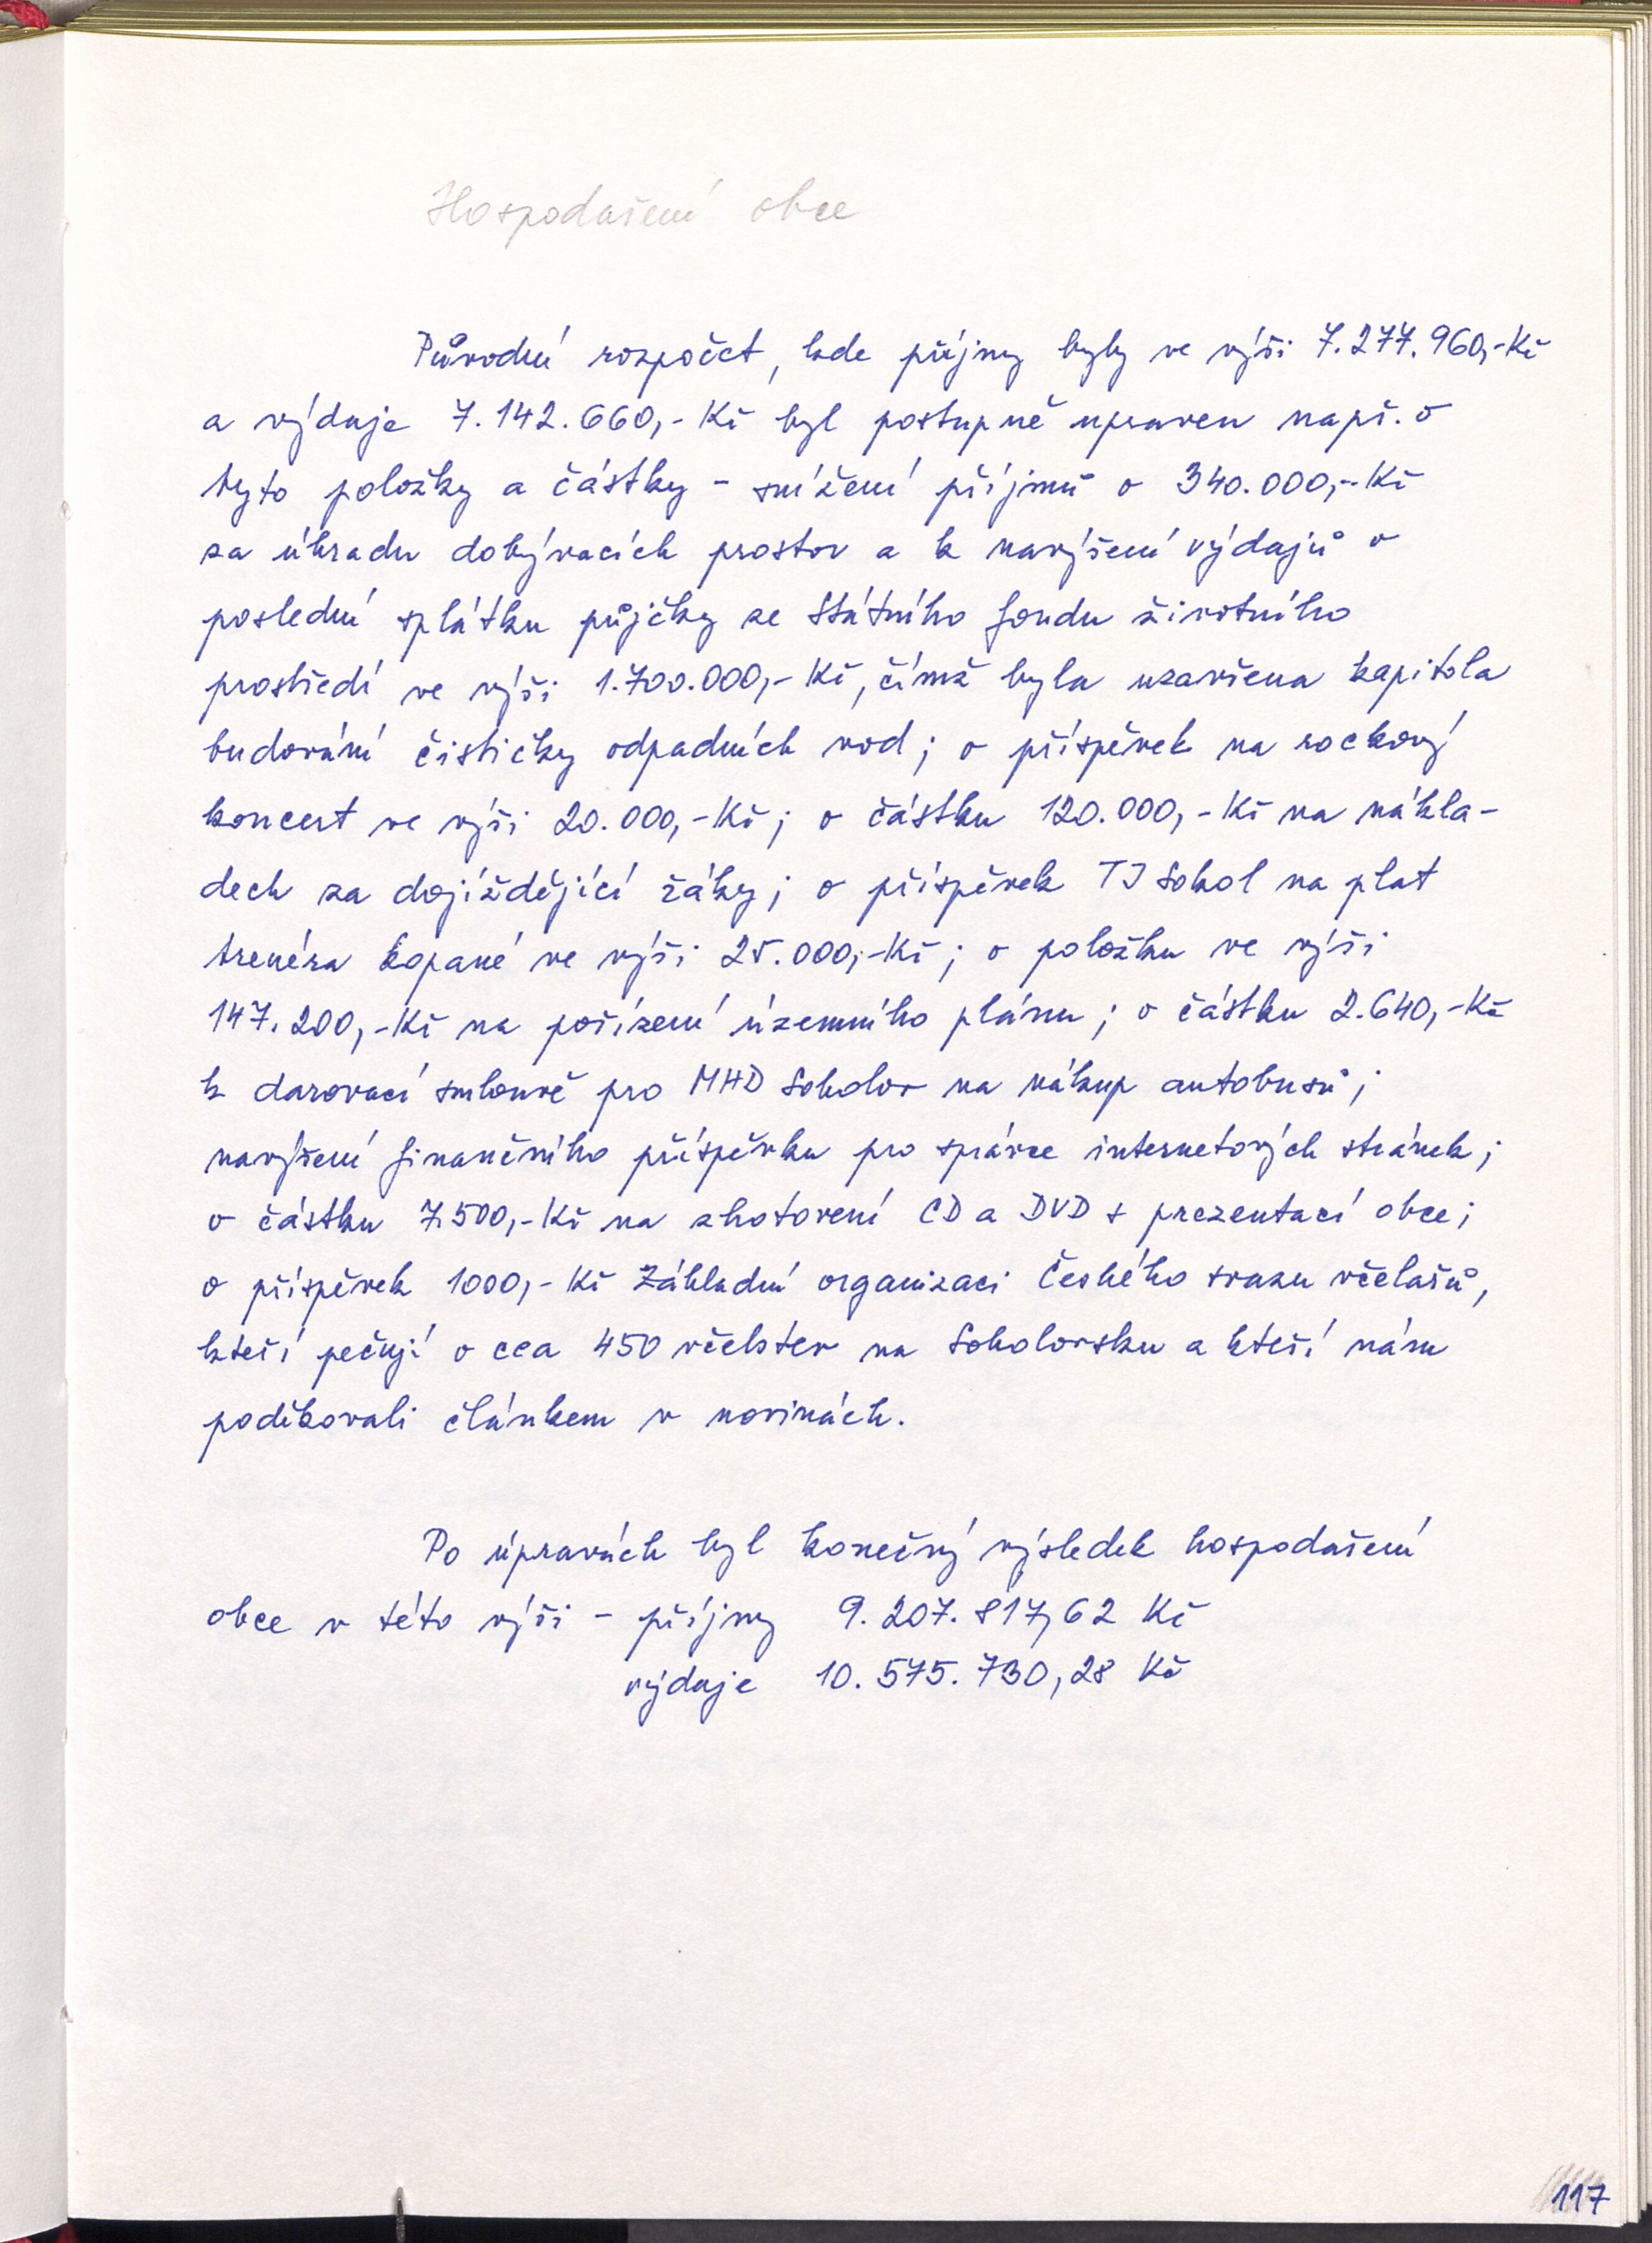 Hospodaření obce
Původní rozpočet, kde příjmy byly ve výši 7.277.960,-Kč
a výdaje 7.142.660,- Kč byl postupně upraven např. o
tyto položky a částky - snížení příjmů o 340.000,- Kč
za úhradu dobývacích prostor a k navýšení výdajů o
poslední splátku půjčky ze Státního fondu životního
prostředí ve výši 1.700.000,- Kč, čímž byla uzavřena kapitola
budování čističky odpadních vod; o příspěvek na rockový
koncert ve výši 20.000,-Kč; o částku 120.000,- Kč na nákla-
dech za dojíždějící žáky; o příspěvek TJ Sokol na plat
trenéra kopané ve výši 25.000,-Kč; o položku ve výši
147.200,-Kč na pořízení územního plánu; o částku 2.640,-Kč
k darovací smlouvě pro MHD Sokolov na nákup autobusů;
navýšení finančního příspěvku pro správce internetových stránek;
o částku 7.500,-Kč na zhotovení CD a DVD s prezentací obce;
o příspěvek 1000,- Kč Základní organizaci Českého svazu včelařů,
kteří pečují o cca 450 včelstev na Sokolovsku a kteří nám
poděkovali článkem v novinách.
Po úpravách byl konečný výsledek hospodaření
obce v této výši - příjmy 9.207.817,62 Kč
výdaje 10.575.730,28 Kč
117